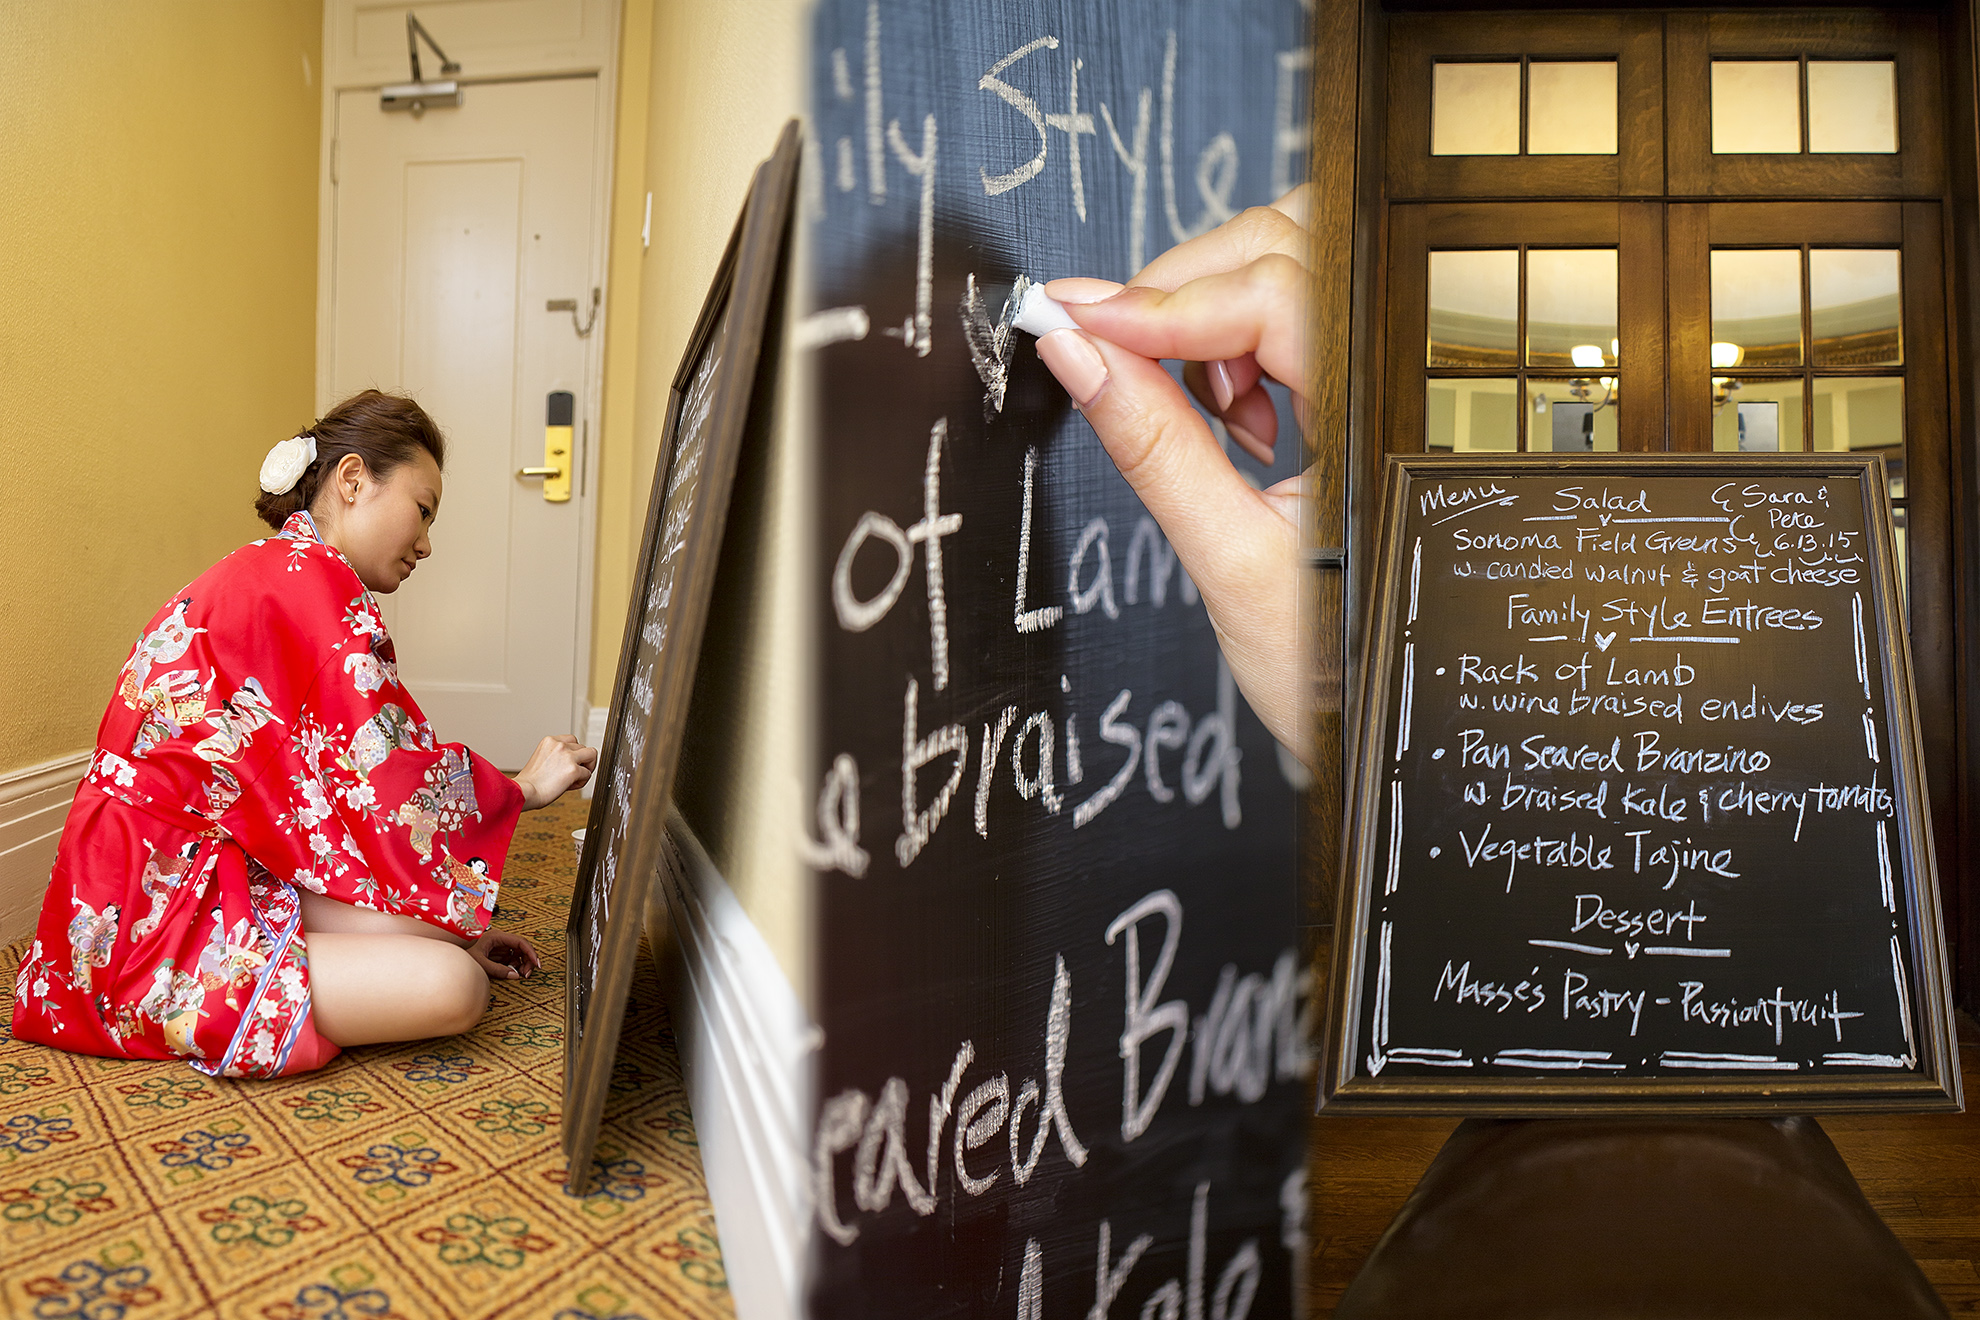 ily Style E
of Lam
e braised
eared Branz
d Kale &
Menu Salad
Sara &
Pete
Sonoma Field Greens 6.13.15
w. candied walnut & goat cheese
Family Style Entrees
• Rack of Lamb
w. wine braised endives
• Pan Seared Branzino
w. braised Kale & cherry tomatos
• Vegetable Tajine
Dessert
Masse's Pastry - Passionfruit